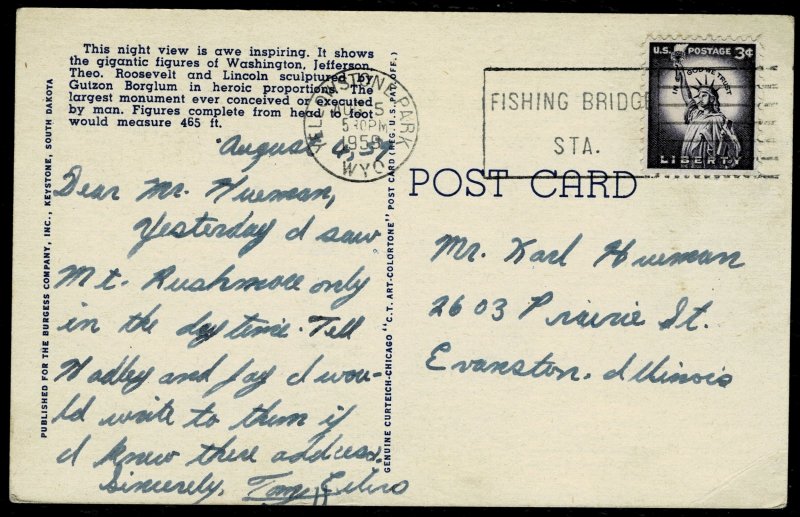 This night view is awe inspiring. It shows
the gigantic figures of Washington, Jefferson,
Theo. Roosevelt and Lincoln sculptured by
Gutzon Borglum in heroic proportions. The
largest monument ever conceived or executed
by man. Figures complete from head to foot
would measure 465 ft.
August
Dear Mr. Hueman,
Yesterday I saw
Mt. Rushmore only
in the daytime. Tell
Hadley and Jay I wou-
ld write to them if
I knew there address.
Sincerely,
PUBLISHED FOR THE BURGESS COMPANY, INC., KEYSTONE, SOUTH DAKOTA
GENUINE CURTEICH-CHICAGO "C.T. ART-COLORTONE" POST CARD (REG. U.S. PAT. OFF.)
YELLOWSTONE PARK
5
530PM
195
WYO
FISHING BRIDGE
STA.
U.S. POSTAGE 3¢
IN GOD WE TRUST
LIBERTY
POST CARD
Mr. Karl Hueman
2603 Prairie St.
Evanston, Illinois